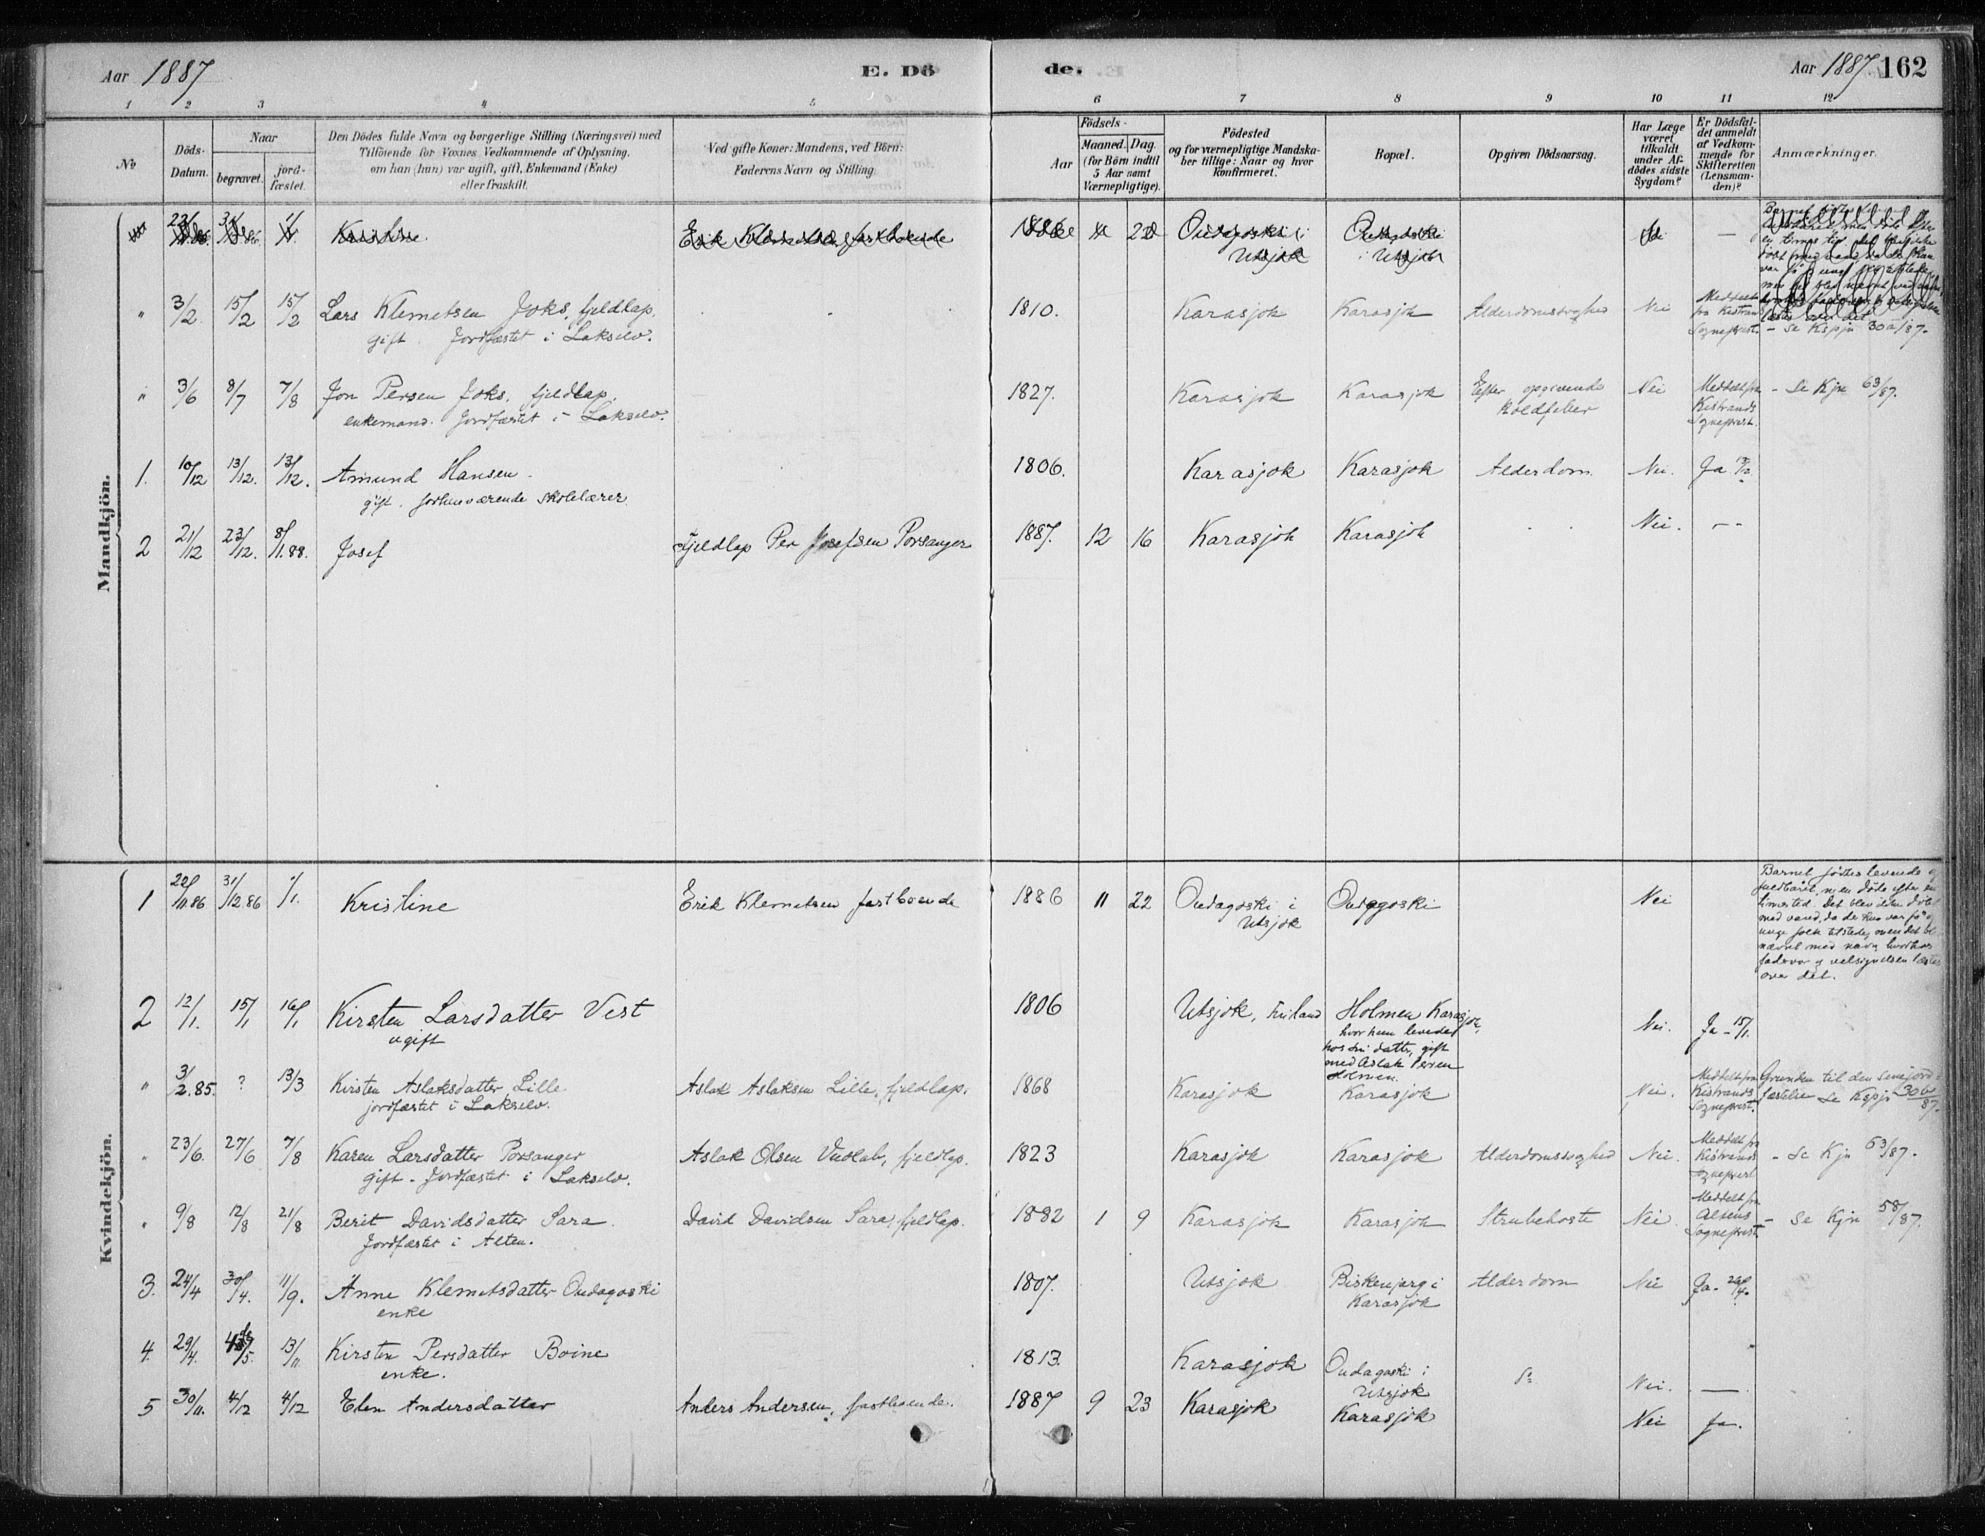 Aar 1887 E. Dö de. Aar 1887 162
1 2 3 4 5 6 7 8 9 10 11 12
No
Döds-Datum.
Naar
begravet.
jord-fæstet.
Den Dödes fulde Navn og borgerlige Stilling (Næringsvei) med
Tilföiende for Voxnes Vedkommende af Oplysning,
om han (hun) var ugift, gift, Enkemand (Enke)
eller fraskilt.
Ved gifte Koner: Mandens, ved Börn:
Faderens Navn og Stilling
Födsels-
Aar
Maaned. Dag.
(for Börn indtil
5 Aar samt
Værnepligtige).
Födested
og for værnepligtige Mandska-
ber tillige: Naar og hvor
konfirmeret.
Bopæl.
Opgiven Dödsaarsag.
Har Læge
været
tilkaldt
under Af-
dödes sidste
Sygdom?
Er Dödsfal-
det anmeldt
af Vedkom-
mende for
Skifteretten
(Lensman-
den)?
Anmærkninger.
Mandkjön.
Kristine Erik Klemetsen fastboende Oudagoski i Utsjok Oudagoski i Utsjok
" 3/2 15/2 15/2 Lars Klemetsen Joks, fjeldlap. 1810. Karasjok Karasjok Alderdomssvaghed Nei Meddelt fra Kistrands Sogneprest. - Se Kspjn 30a/87.
gift. Jordfæstet i Lakselv.
" 3/6 8/7 7/8 Jon Persen Joks, fjeldlap. 1827. Karasjok Karasjok Efter opgivende Koldfeber Nei Meddelt fra Kistrands Sogneprest. - Se Kjn 63/87.
enkemand. Jordfæstet i Lakselv.
1. 10/12 13/12. 13/12. Amund Hansen. 1806. Karasjok Karasjok Alderdom. Nei. Ja
gift. forhenværende skolelærer
2 21/12 23/12. 8/1.88. Josef Fjeldlap Per Josefsen Porsanger 1887. 12 16 Karasjok Karasjok Nei. --
Kvindekjön.
1 22/11.86 31/12.86 1/1. Kristine Erik Klemetsen fastboende 1886 11 22 Oudagoski i Utsjok Oudagoski Nei
Barnet födtes levende
men döde efter en
times tid. Det blev ikke döbt
med vand, da de kun var få og
unge folk tilstede, men det bl.
nævnt med navn hvorhos
fadervor og velsignelsen læstes
over det.
2 12/1. 15/1 16/1 Kirsten Larsdatter Vest 1806 Utsjok, Finland Holmen Karasjok, Nei. Ja - 15/1.
ugift
hvor hun levede
hos sin datter, gift
med Aslak Persen
Holmen.
" 3/2.85. ? 13/3 Kirsten Aslaksdatter Lille Aslak Aslaksen Lille, fjeldlap. 1868 Karasjok Karasjok Nei. Meddelt fra Kistrands Sogneprest. Grunden til den sene jordfæstelse se Kspjn 30b/87.
jordfæstet i Lakselv.
" 23/6. 27/6 7/8 Karen Larsdatter Porsanger Aslak Olsen Vuolab, fjeldlap. 1823 Karasjok Karasjok Alderdomssvaghed Nei. Meddelt fra Kistrands Sogneprest - Se Kjn 63/87.
gift - Jordfæstet i Lakselv.
" 9/8 12/8 21/8 Berit Davidsdatter Sara David Davidsen Sara, fjeldlap. 1882 1 9 Karasjok Karasjok Strubehoste Nei Meddelt fra Altens Sogneprest. - Se Kjn 58/87.
Jordfæstet i Alten.
3. 24/4 30/4. 11/9. Anne Klemetsdatter Oudagoski 1807. Utsjok Biskenjarg i Karasjok Alderdom Nei Ja.
enke
4. 29/4. 13/11. Kirsten Persdatter Boine 1813. Karasjok Oudagoski i Utsjok Nei. —
enke.
5 30/11. 4/12 4/12 Elen Andersdatter Anders Andersen, fastboende. 1887 9 23 Karasjok Karasjok Nei Ja.